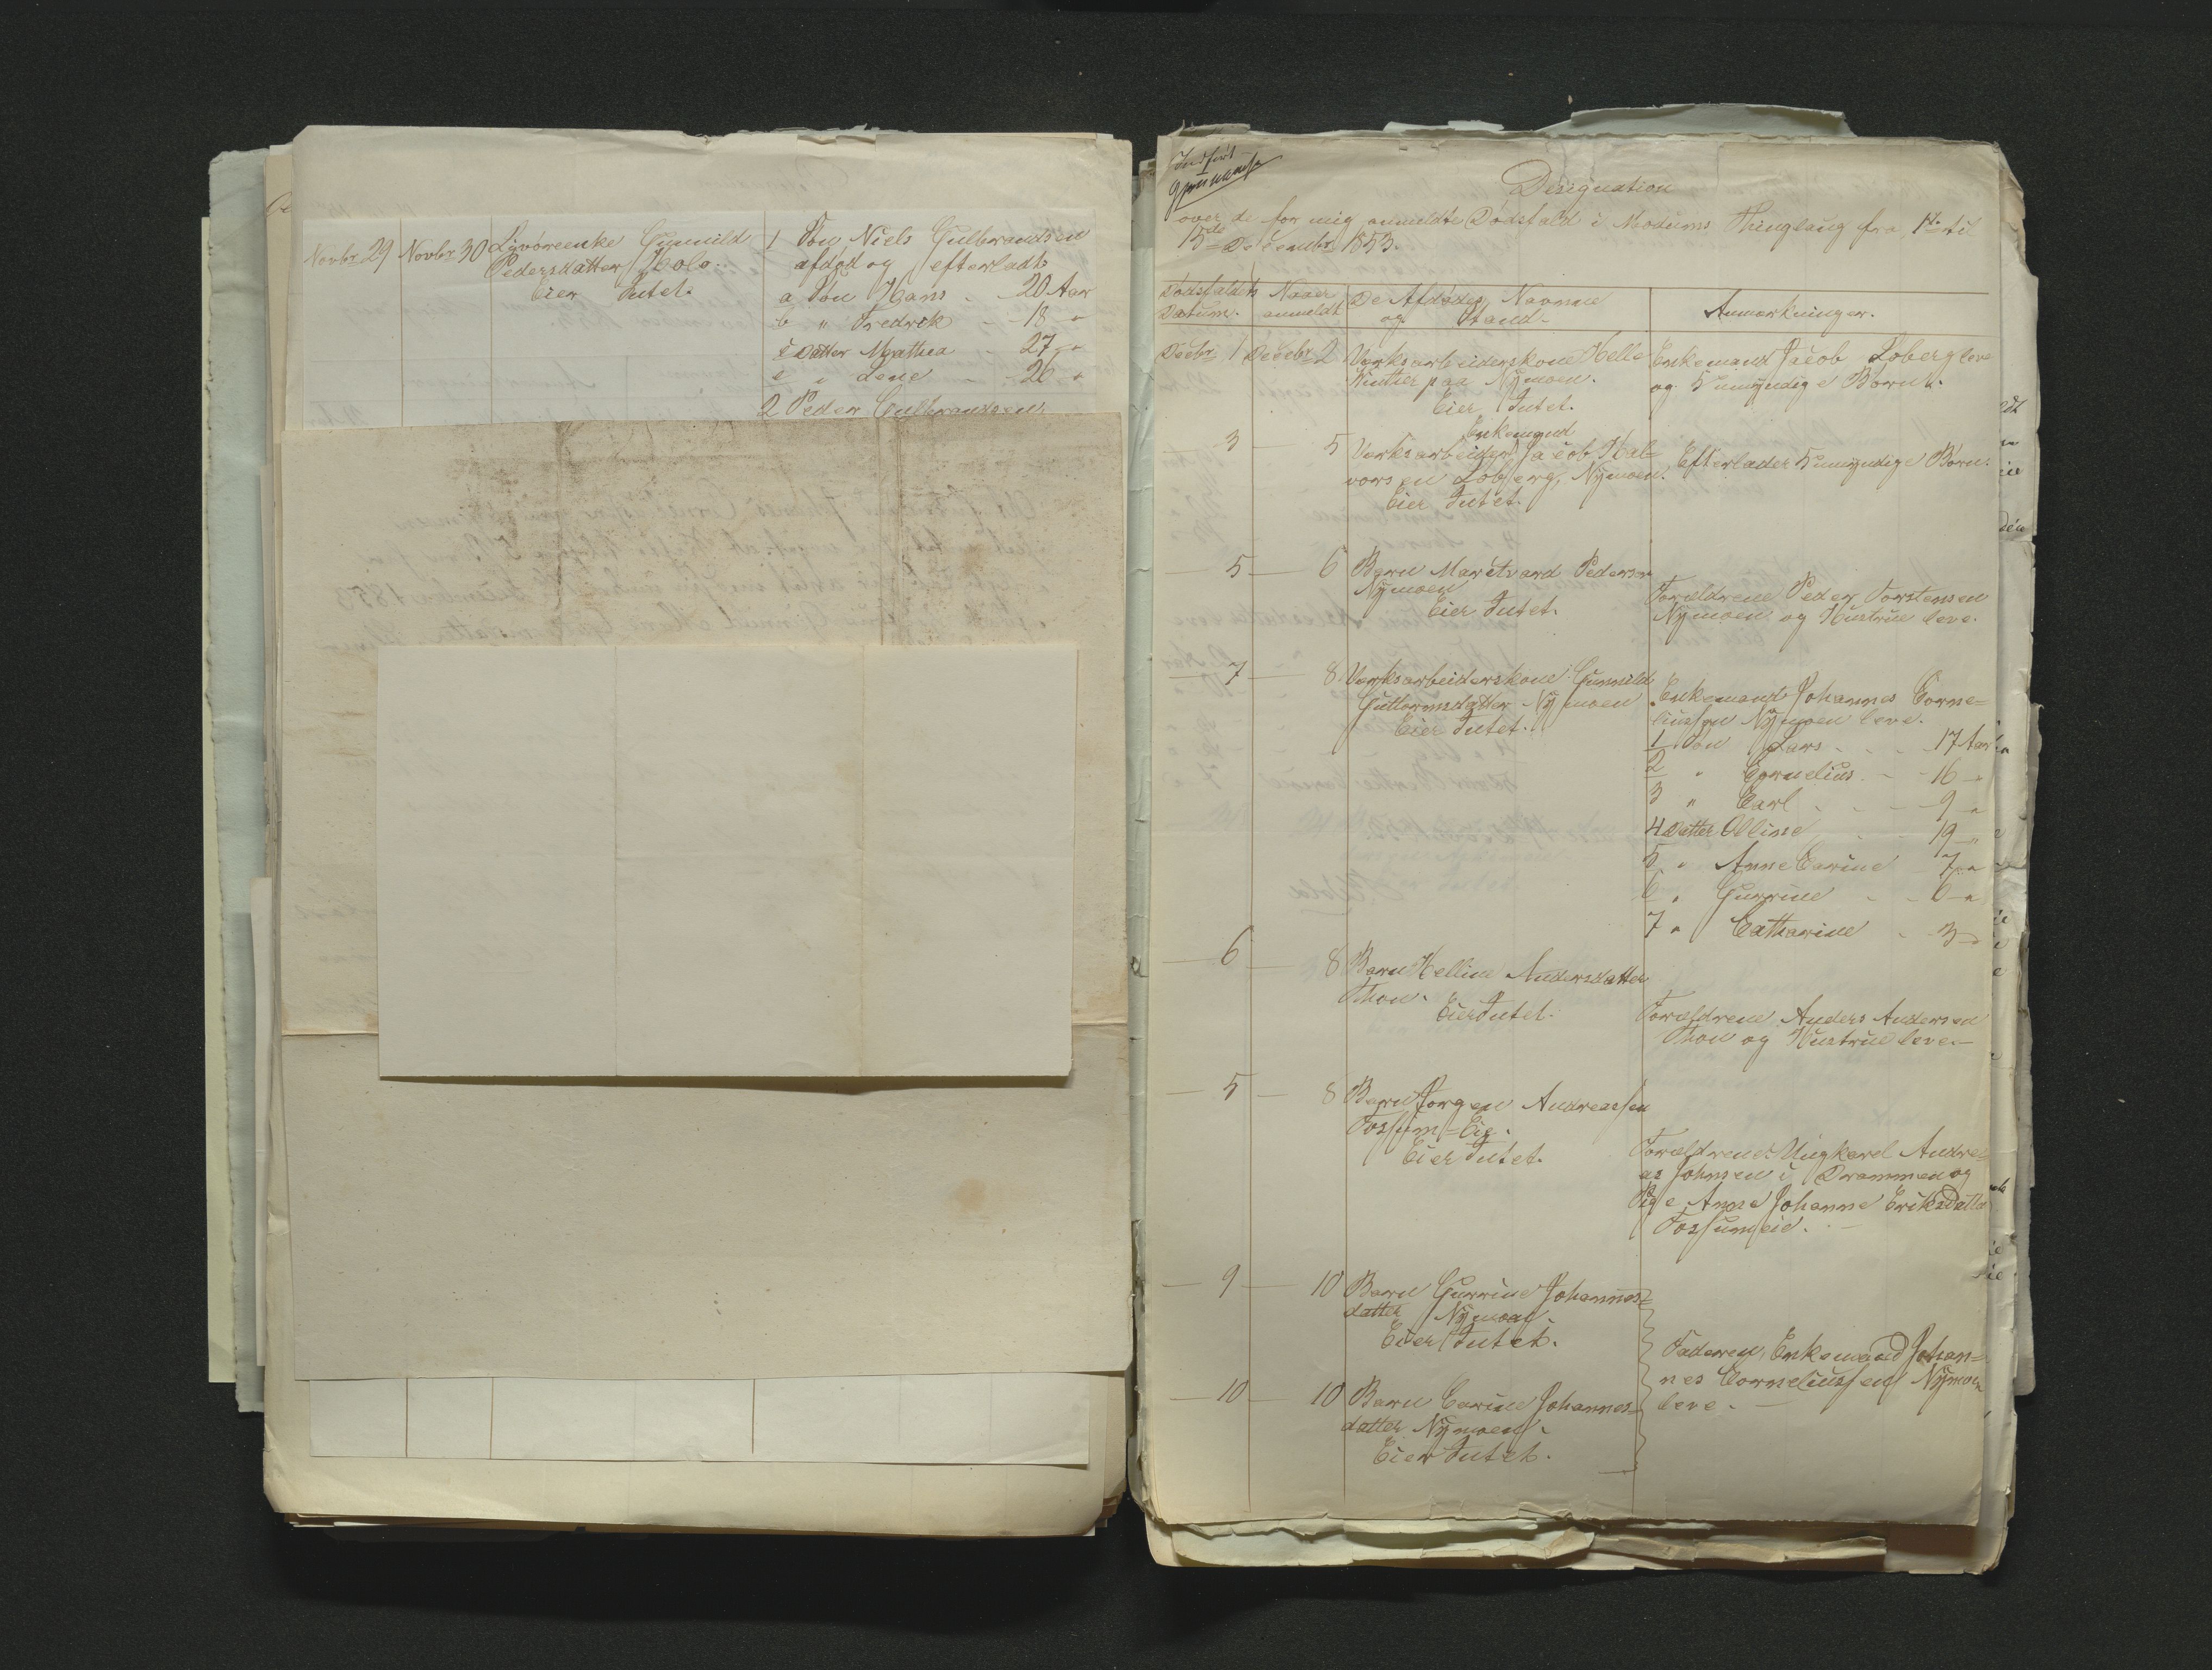 Novbr 29 Novbr 30 Livøreenke Gunnild
Pedersdatter Holo.
Eier Intet.
1 Søn Niels Gulbrandsen
afdød og efterladt
a Søn Hans - 20 Aar
b " Fredrik - 18 "
c Datter Mathea - 27 "
e " Lene - 26 "
2 Peder Gulbrandsen
Indført
Designation
over de for mig anmeldte Dødsfald i Modums Thinglaug fra 1ste til
15de December 1853.
Dødsfaldets Datum.
Naaer anmeldt
De Afdødes Navne
og Stand.
Anmærkninger.
Decbr 1 Decebr 2 Værksarbeiderskone Helle
Kinther paa Nymoen.
Eier Intet.
Enkemand Jacob Loberg leve
og 5 umyndige Børn.
3 — 5 Enkemand
Værksarbeider Jacob Hal=
vorsen Loberg, Nymoen.
Eier Intet.
Efterlader 5 umyndige Børn.
5 — 6 Barn Pedersen
Nymoen
Eier Intet.
Forældrene Peder Torstensen
Nymoen og Hustrue leve.
7 — 8 Værksarbeiderskone Gunnild
Guttormsdatter Nymoen
Eier Intet.
Enkemand Johannes Corne=
liussen Nymoen leve.
1 Søn Lars - - - 17 Aar
2 " Cornelius - - 16 "
3 " Carl - - - 9 "
4 Datter Olline - - 19 "
5 " Anne Carine - 7 "
6 " Gurrine - - 6 "
7 " Catharine - 3 "
— 6 — 8 Barn Helline Andersdatter
Thon.
Eier Intet.
Forældrene Anders Andersen
Thon og Hustrue leve.—
— 5 — 8 Barn Jørgen Andreassen
Fossum=Eie.
Eier Intet.
Forældrene Ungkarl Andre=
as Johnsen i Drammen og
Pige Anne Johanne Eriksdatter
Fossumeie.
— 9 — 10 Barn Gurrine Johannes=
datter Nymoen.
Eier Intet.
— 10 — 10 Barn Carine Johannes=
datter Nymoen.
Eier Intet.
Faderen, Enkemand Johan=
nes Corneliussen Nymoen
leve. —